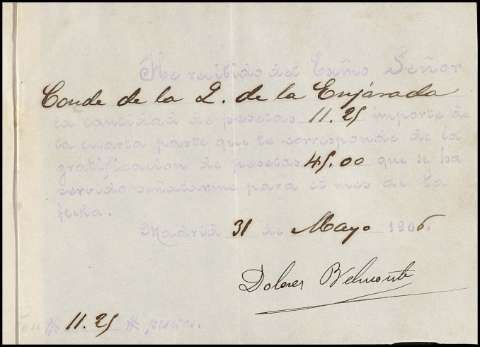 He recibido del Exmo Señor
Conde de la Q. de la Enjarada
la cantidad de pesetas 11.25 importe de
la cuarta parte que le corresponde de la
gratificacion de pesetas 45.00 que se ha
servido señalarme para el mes de la
fecha.
Madrid 31 de Mayo 1906
Dolores Belmonte
11.25